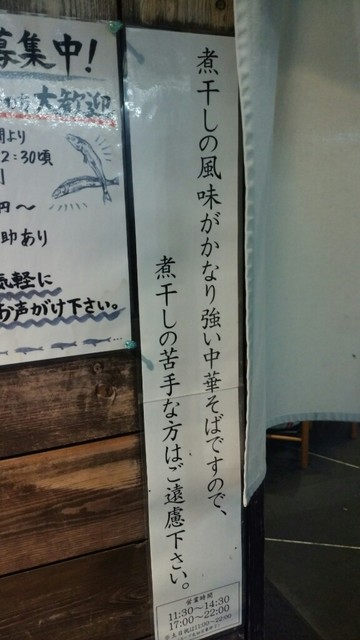 煮干しの風味がかなり強い中華そばですので、
煮干しの苦手な方はご遠慮下さい。
営業時間
11:30～14:30
17:00～22:00
募集中！
大歓迎
2:30頃
円～
助あり
気軽に
お声がけ下さい。